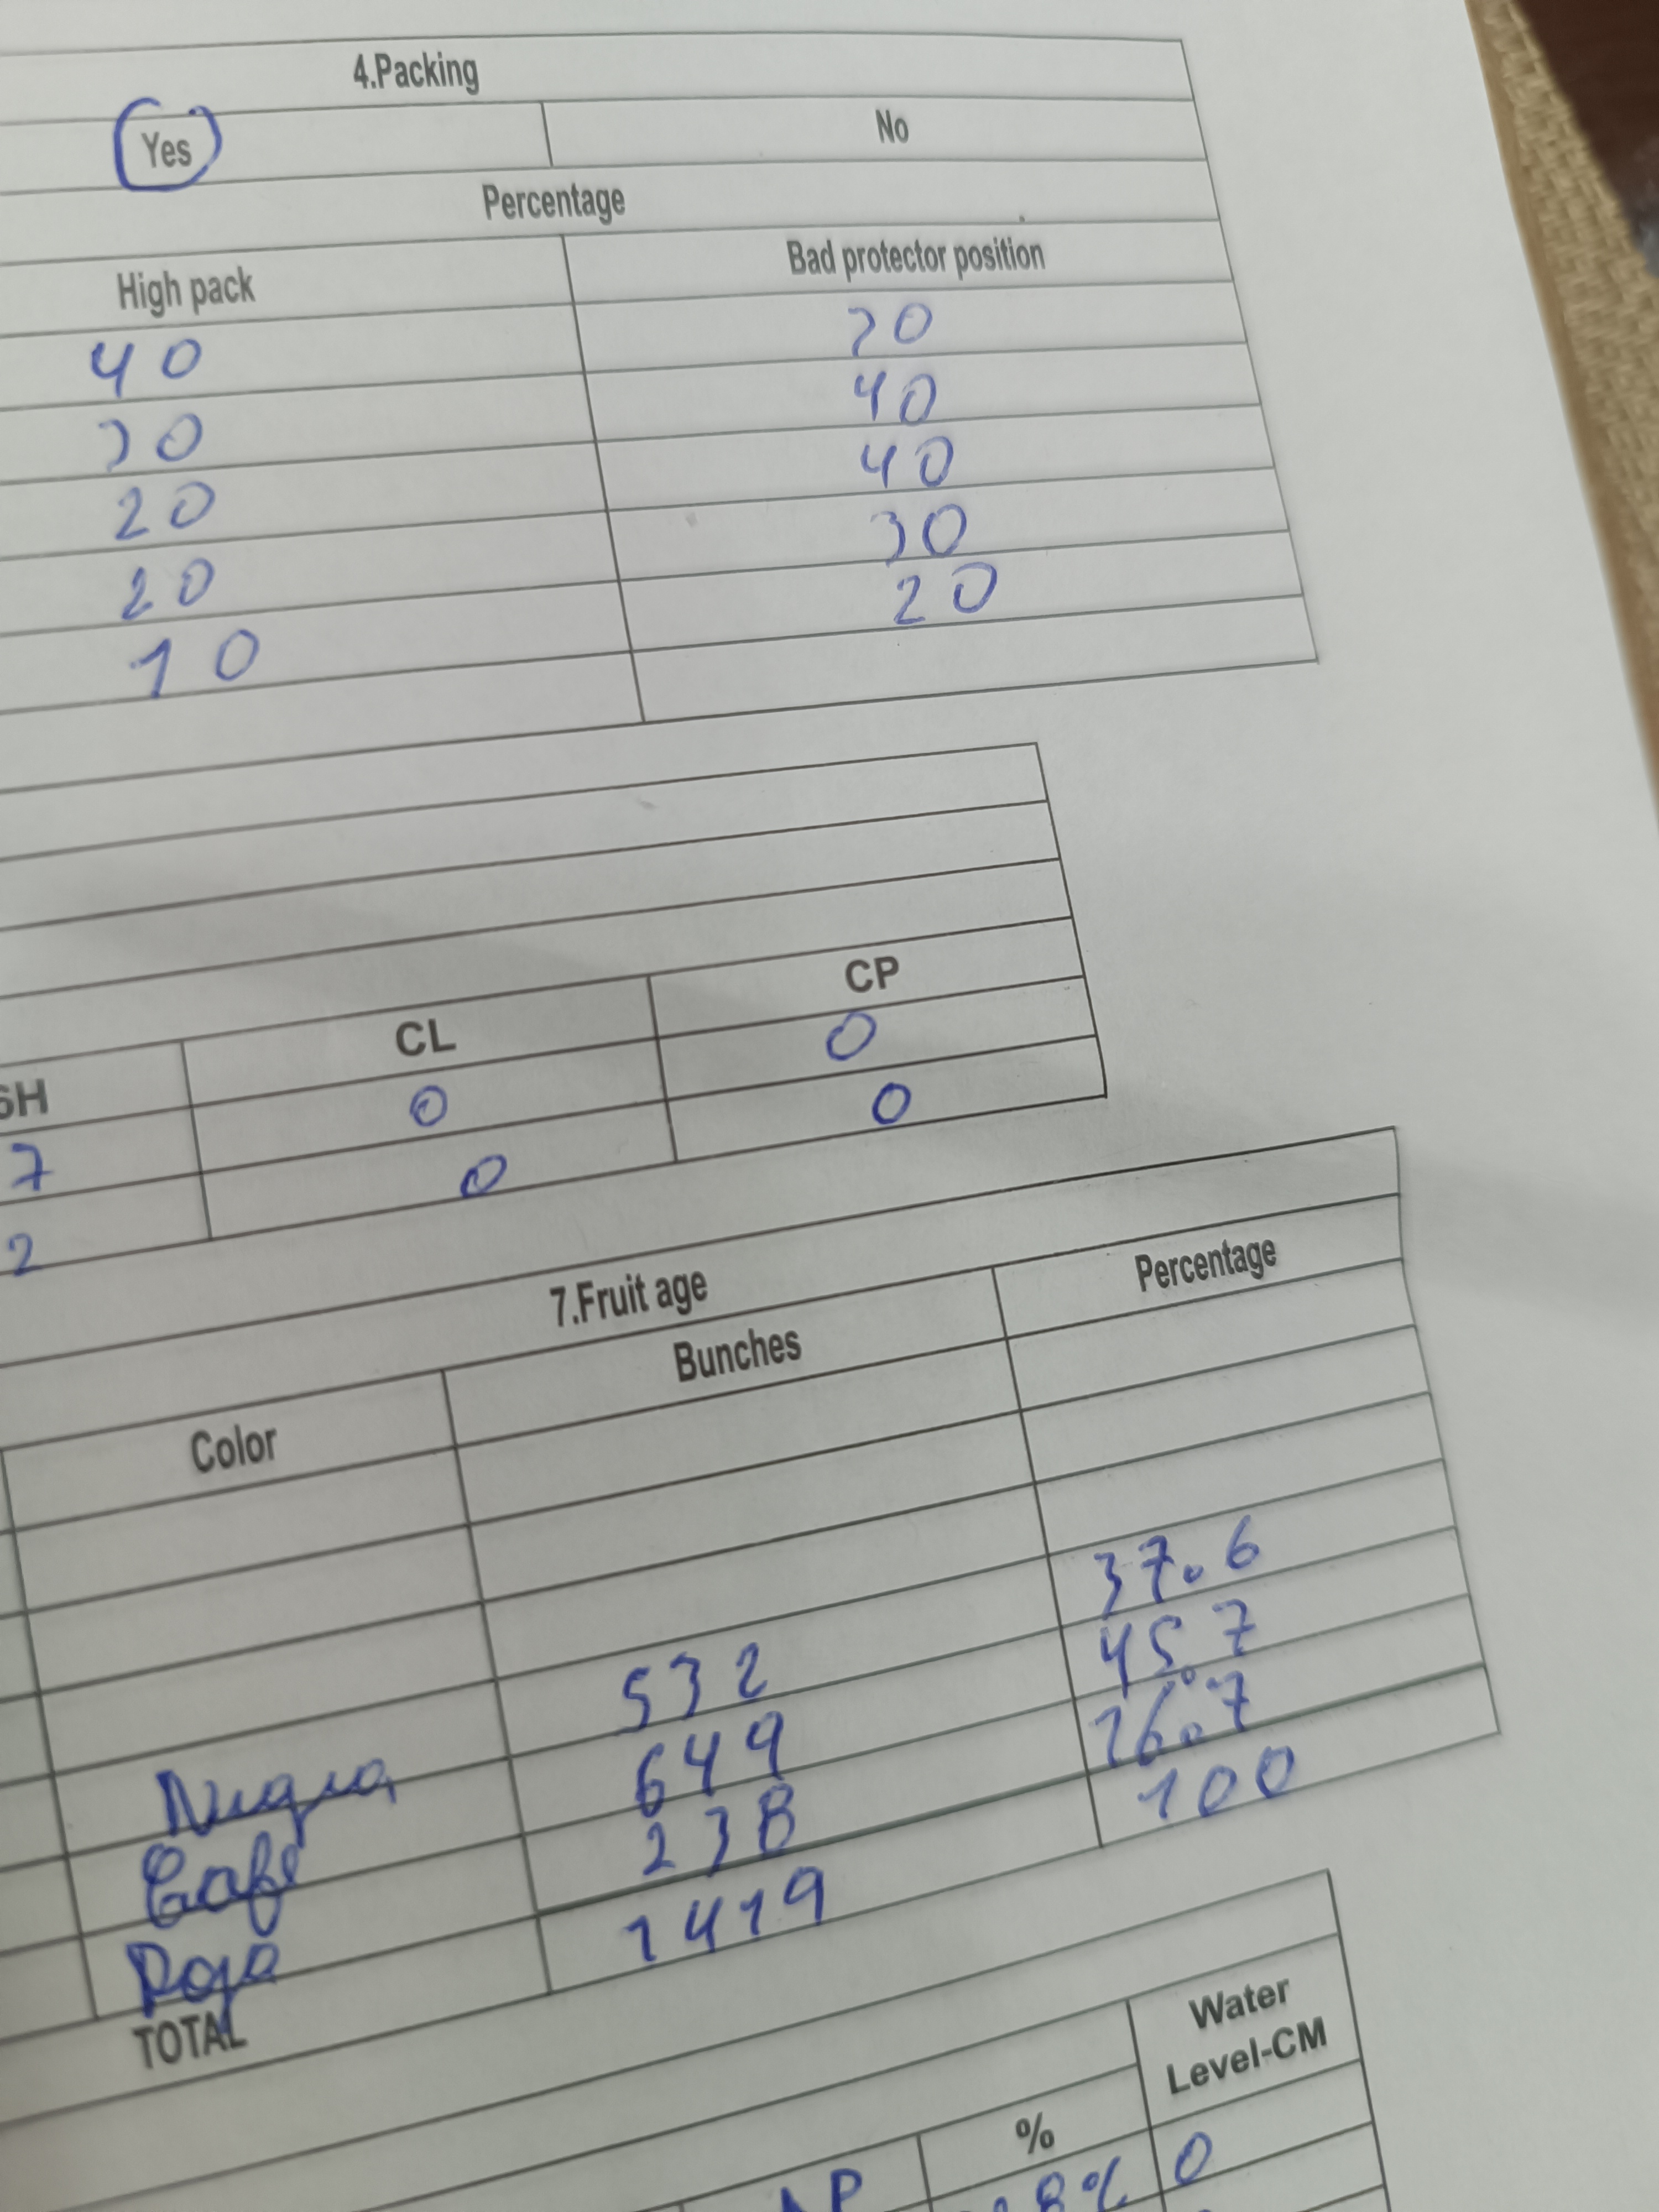 4.Packing
Yes No
Percentage
High pack Bad protector position
40 30
30 40
20 40
20 30
10 20
SH CL CP
7 0 0
2 0 0
7.Fruit age
Color Bunches Percentage
Negra 532 37.6
Cafe 649 45.7
Roja 238 16.7
TOTAL 1419 100
Water
Level-CM
%
8% 0